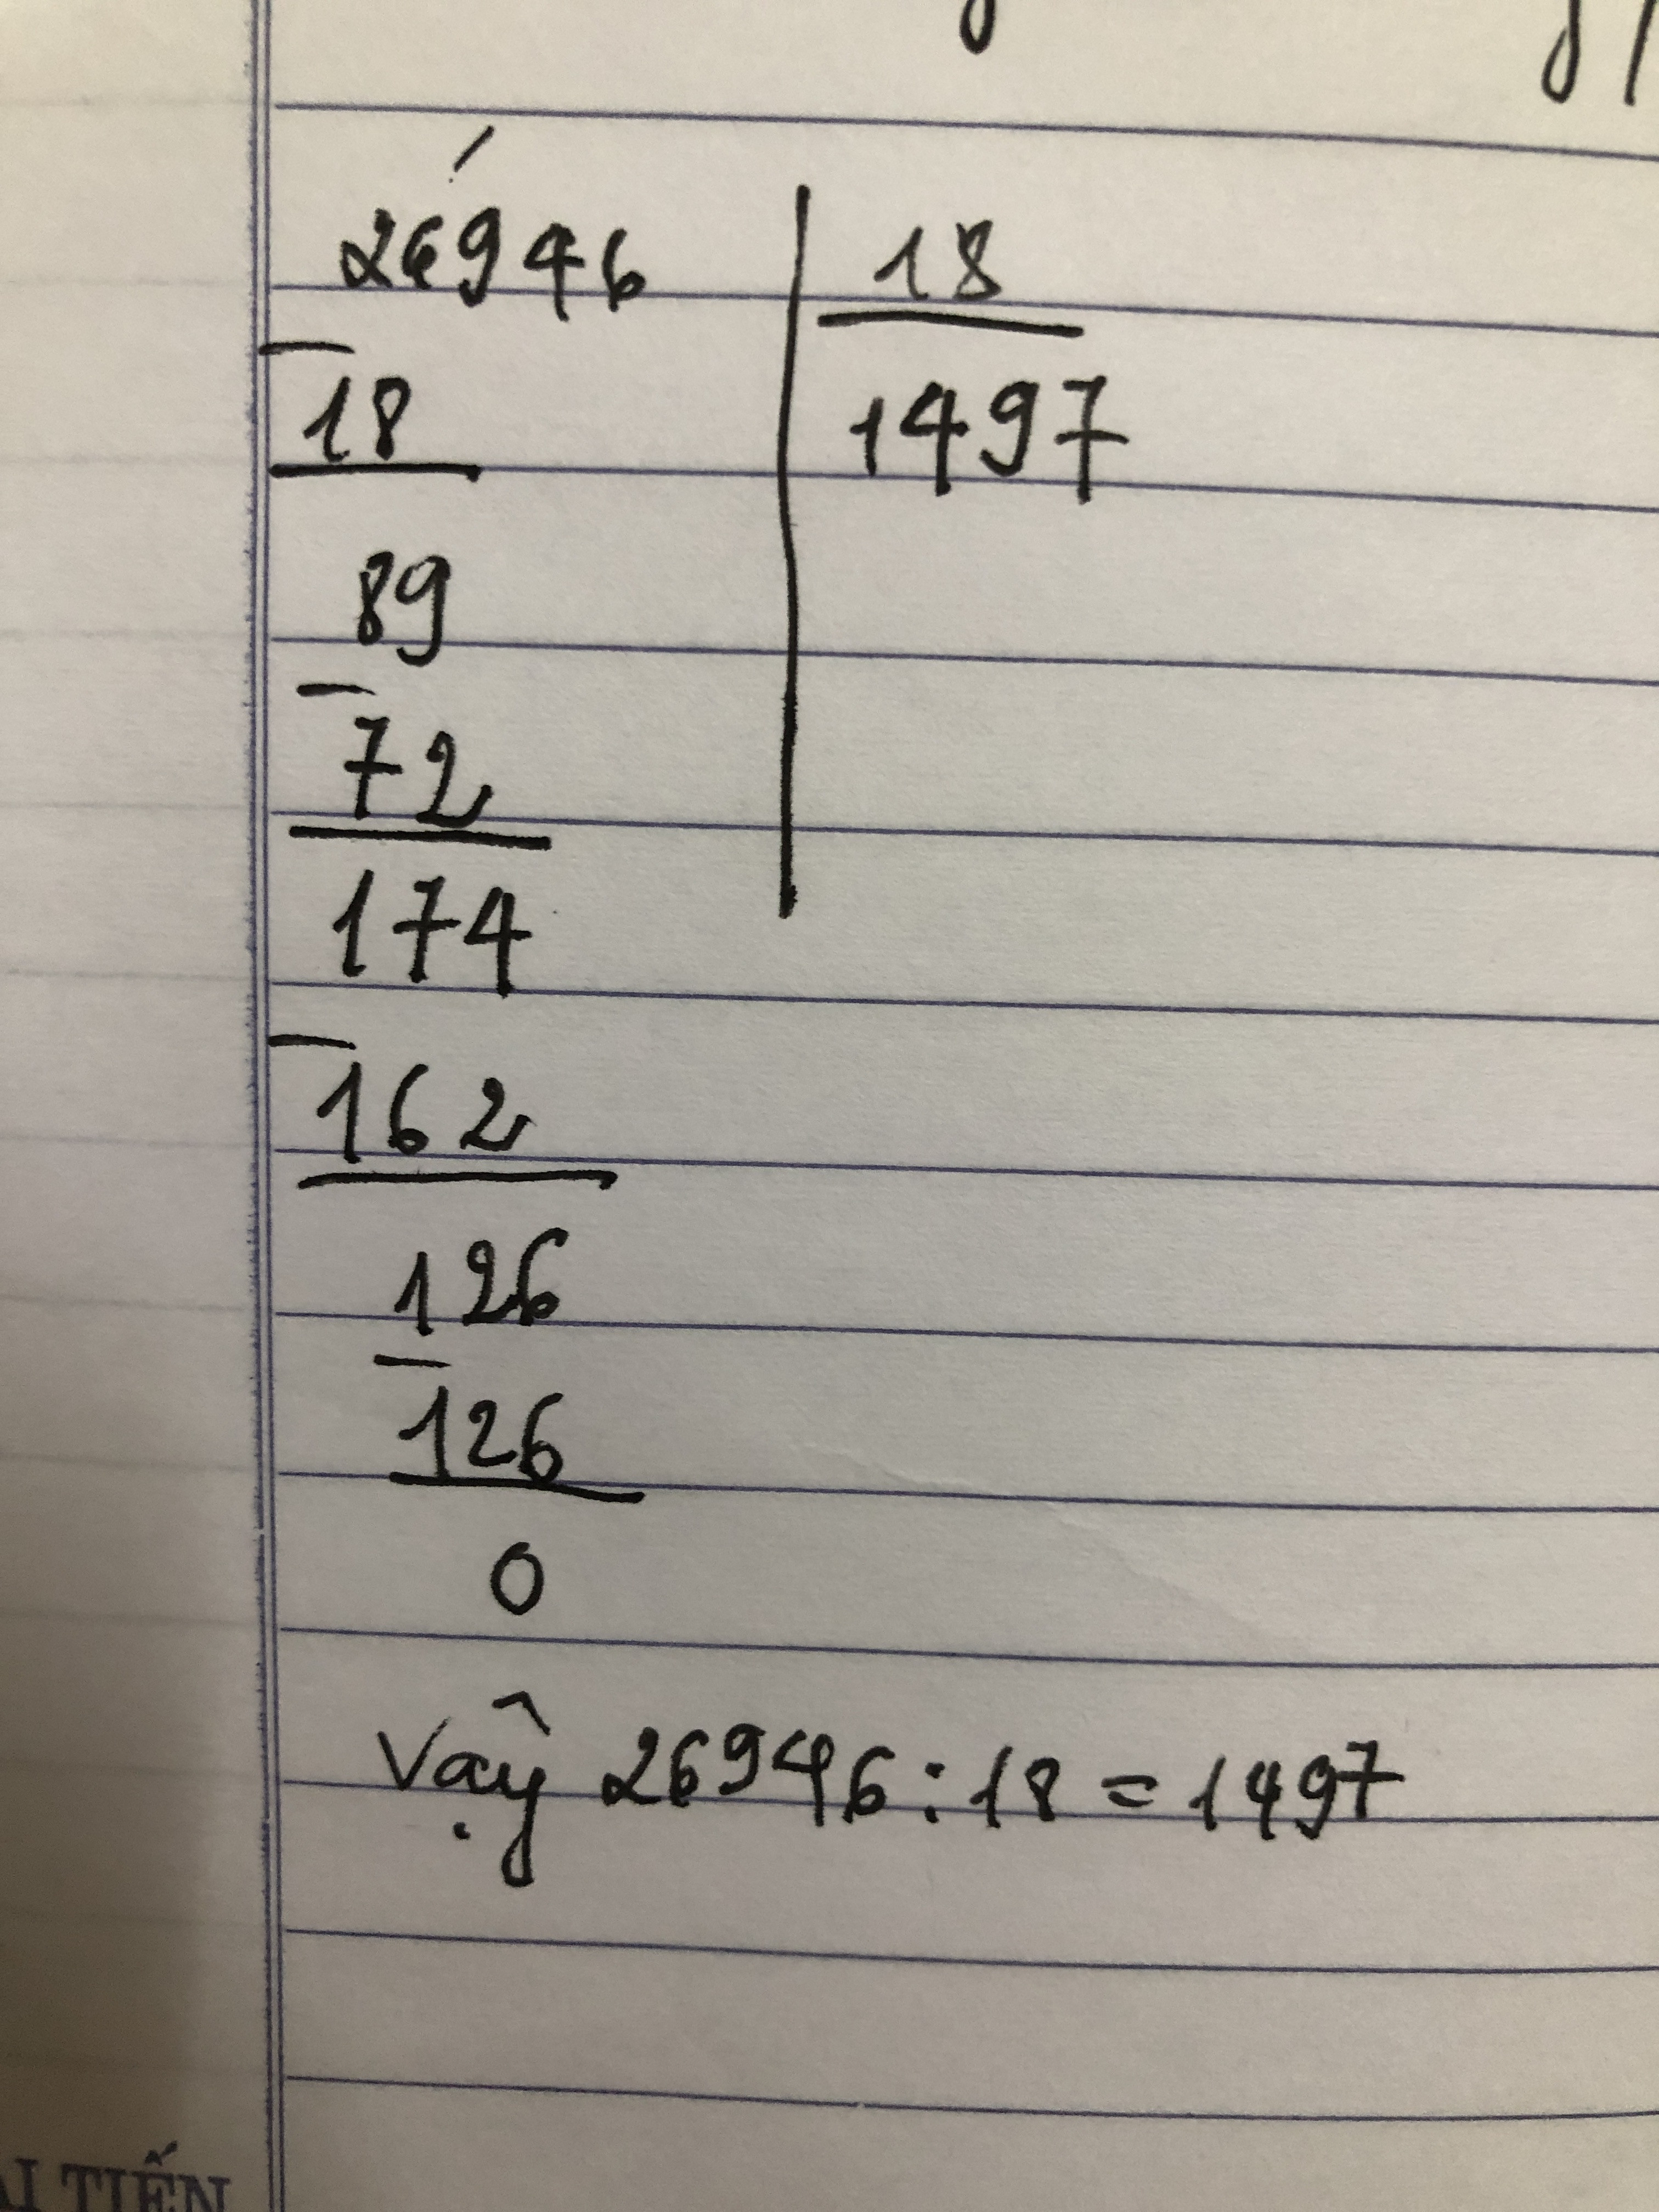 26946 | 18
- 18 1497
89
- 72
174
- 162
126
- 126
0
Vậy 26946 : 18 = 1497
TIẾN